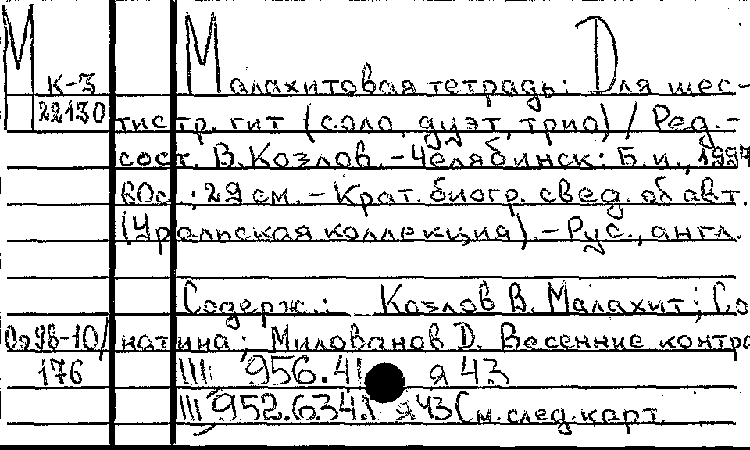 М К-3 Малахитовая тетрадь: Для шес-
22130 тистр. гит (соло, дуэт, трио) / Ред.-
сост. В. Козлов. - Челябинск: Б.и., 1997
60с.; 29 см. - Крат. биогр. свед. об авт.
(Уральская коллекция). - Рус., англ.
Содерж.: Козлов В. Малахит; Со
натина; Милованов Д. Весенние контра
176 Щ 956.41 я 43
Щ 952.634.1 я43 См. след. карт.